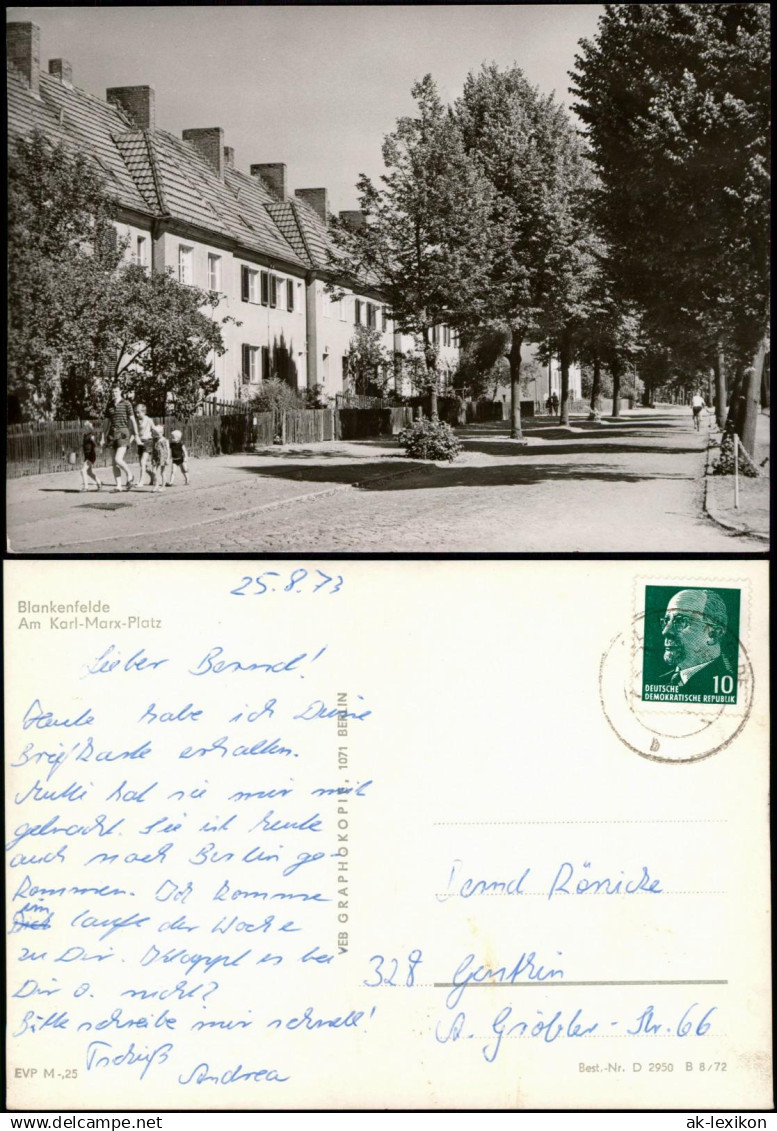 25.8.73
Blankenfelde
Am Karl-Marx-Platz
Lieber Bernd!
Heute habe ich Deine
Briefkarte erhalten.
Mutti hat sie mir mit
gebracht. Sie ist heute
auch nach Berlin ge-
kommen. Ich komme
im laufe der Woche
zu Dir. Klappt es bei
Dir o. nicht?
Bitte schreibe mir schnell!
Tschüß
Andrea
EVP M -,25
VEB GRAPHOKOPIE, 1071 BERLIN
10
DEUTSCHE
DEMOKRATISCHE REPUBLIK
b
Bernd Rönicke
328 Genthin
A. Gröbler-Str. 66
Best.-Nr. D 2950 B 8/72
ak-ansichtskarten.de
ak-lexikon.com